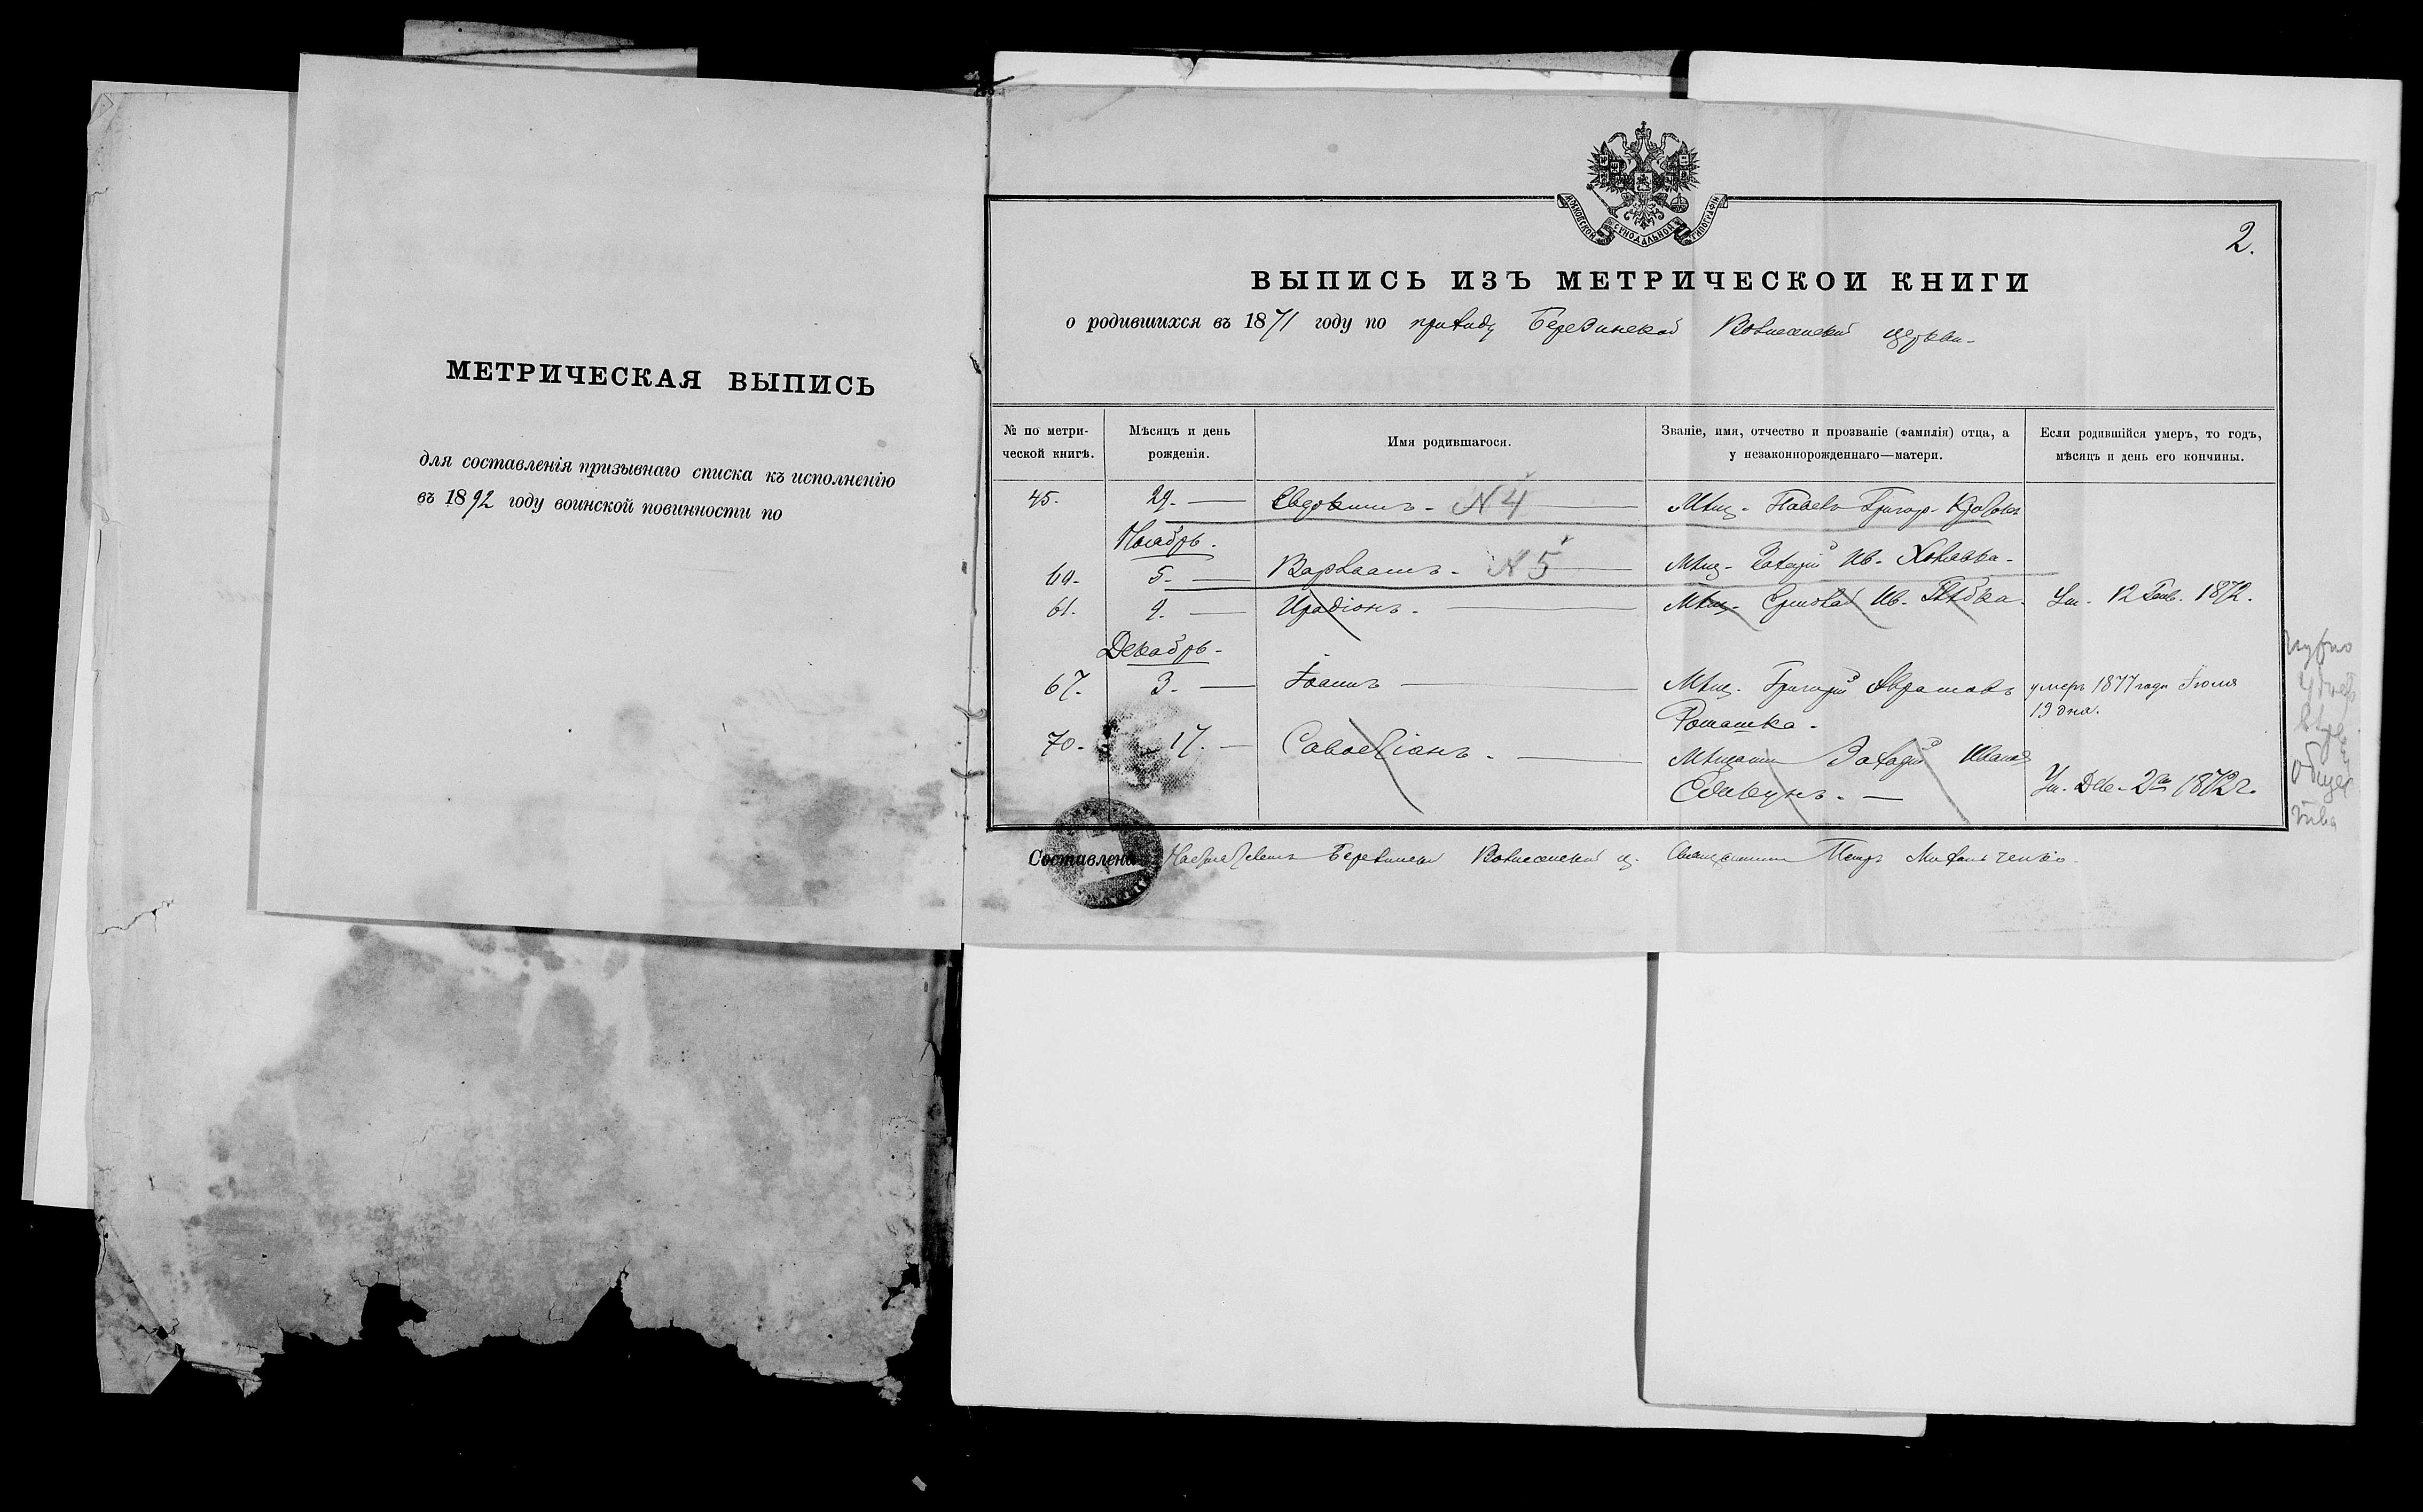 МЕТРИЧЕСКАЯ ВЫПИСЬ
для составленія призывнаго списка къ исполненію
въ 1892 году воинской повинности по
МОСКОВСКОЙ СУНОДАЛЬНОЙ ТИПОГРАФІИ
2.
ВЫПИСЬ ИЗЪ МЕТРИЧЕСКОЙ КНИГИ
о родившихся въ 1871 году по приходу Березинской Вознесенской церкви-
№ по метри-
ческой книгѣ.
Мѣсяцъ и день
рожденія.
Имя родившагося.
Званіе, имя, отчество и прозваніе (фамилія) отца, а
у незаконнорожденнаго—матери.
Если родившійся умеръ, то годъ,
мѣсяцъ и день его кончины.
45. 29. — Евдокимъ - N 4 — Мѣщ. Павелъ Григор.
Ноябрь.
60. 5. — Варлаамъ - N 5 — Мѣщ. Захарій Ив.
61. 9. — Иродіонъ. — Мѣщ. Ермолай Ив. Ум. 12 Генв. 1872.
Декабрь.
67. 3. — Іоаннъ — Мѣщ. Григорій Аврамовъ умеръ 1877 года Іюля
Ромашка. 19 дня.
70. 17. — Савостіанъ. — Мѣщанин Захарій Иванов
Ум. Дек. 2го 1872 г.
Составленъ Настоятелемъ Березинской Вознесенской ц. Священникъ Петръ